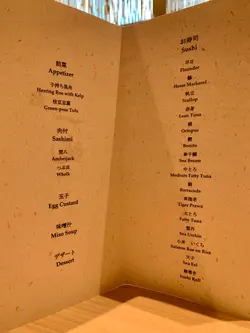 前菜
Appetizer
子持ち昆布
Herring Roe with Kelp
枝豆豆腐
Green-peas Tofu
肉付
Sashimi
間八
Amberjack
つぶ貝
Whelk
玉子
Egg Custard
味噌汁
Miso Soup
デザート
Dessert
お寿司
Sushi
平目
Flounder
鯵
Horse Mackerel
帆立
Scallop
赤身
Lean Tuna
蛸
Octopus
鰹
Bonito
金目鯛
Sea Bream
中とろ
Medium Fatty Tuna
Barracuda
車海老
Tiger Prawn
大とろ
Fatty Tuna
雲丹
Sea Urchin
小丼 いくら
Salmon Roe on Rice
穴子
Sea Eel
Sushi Roll